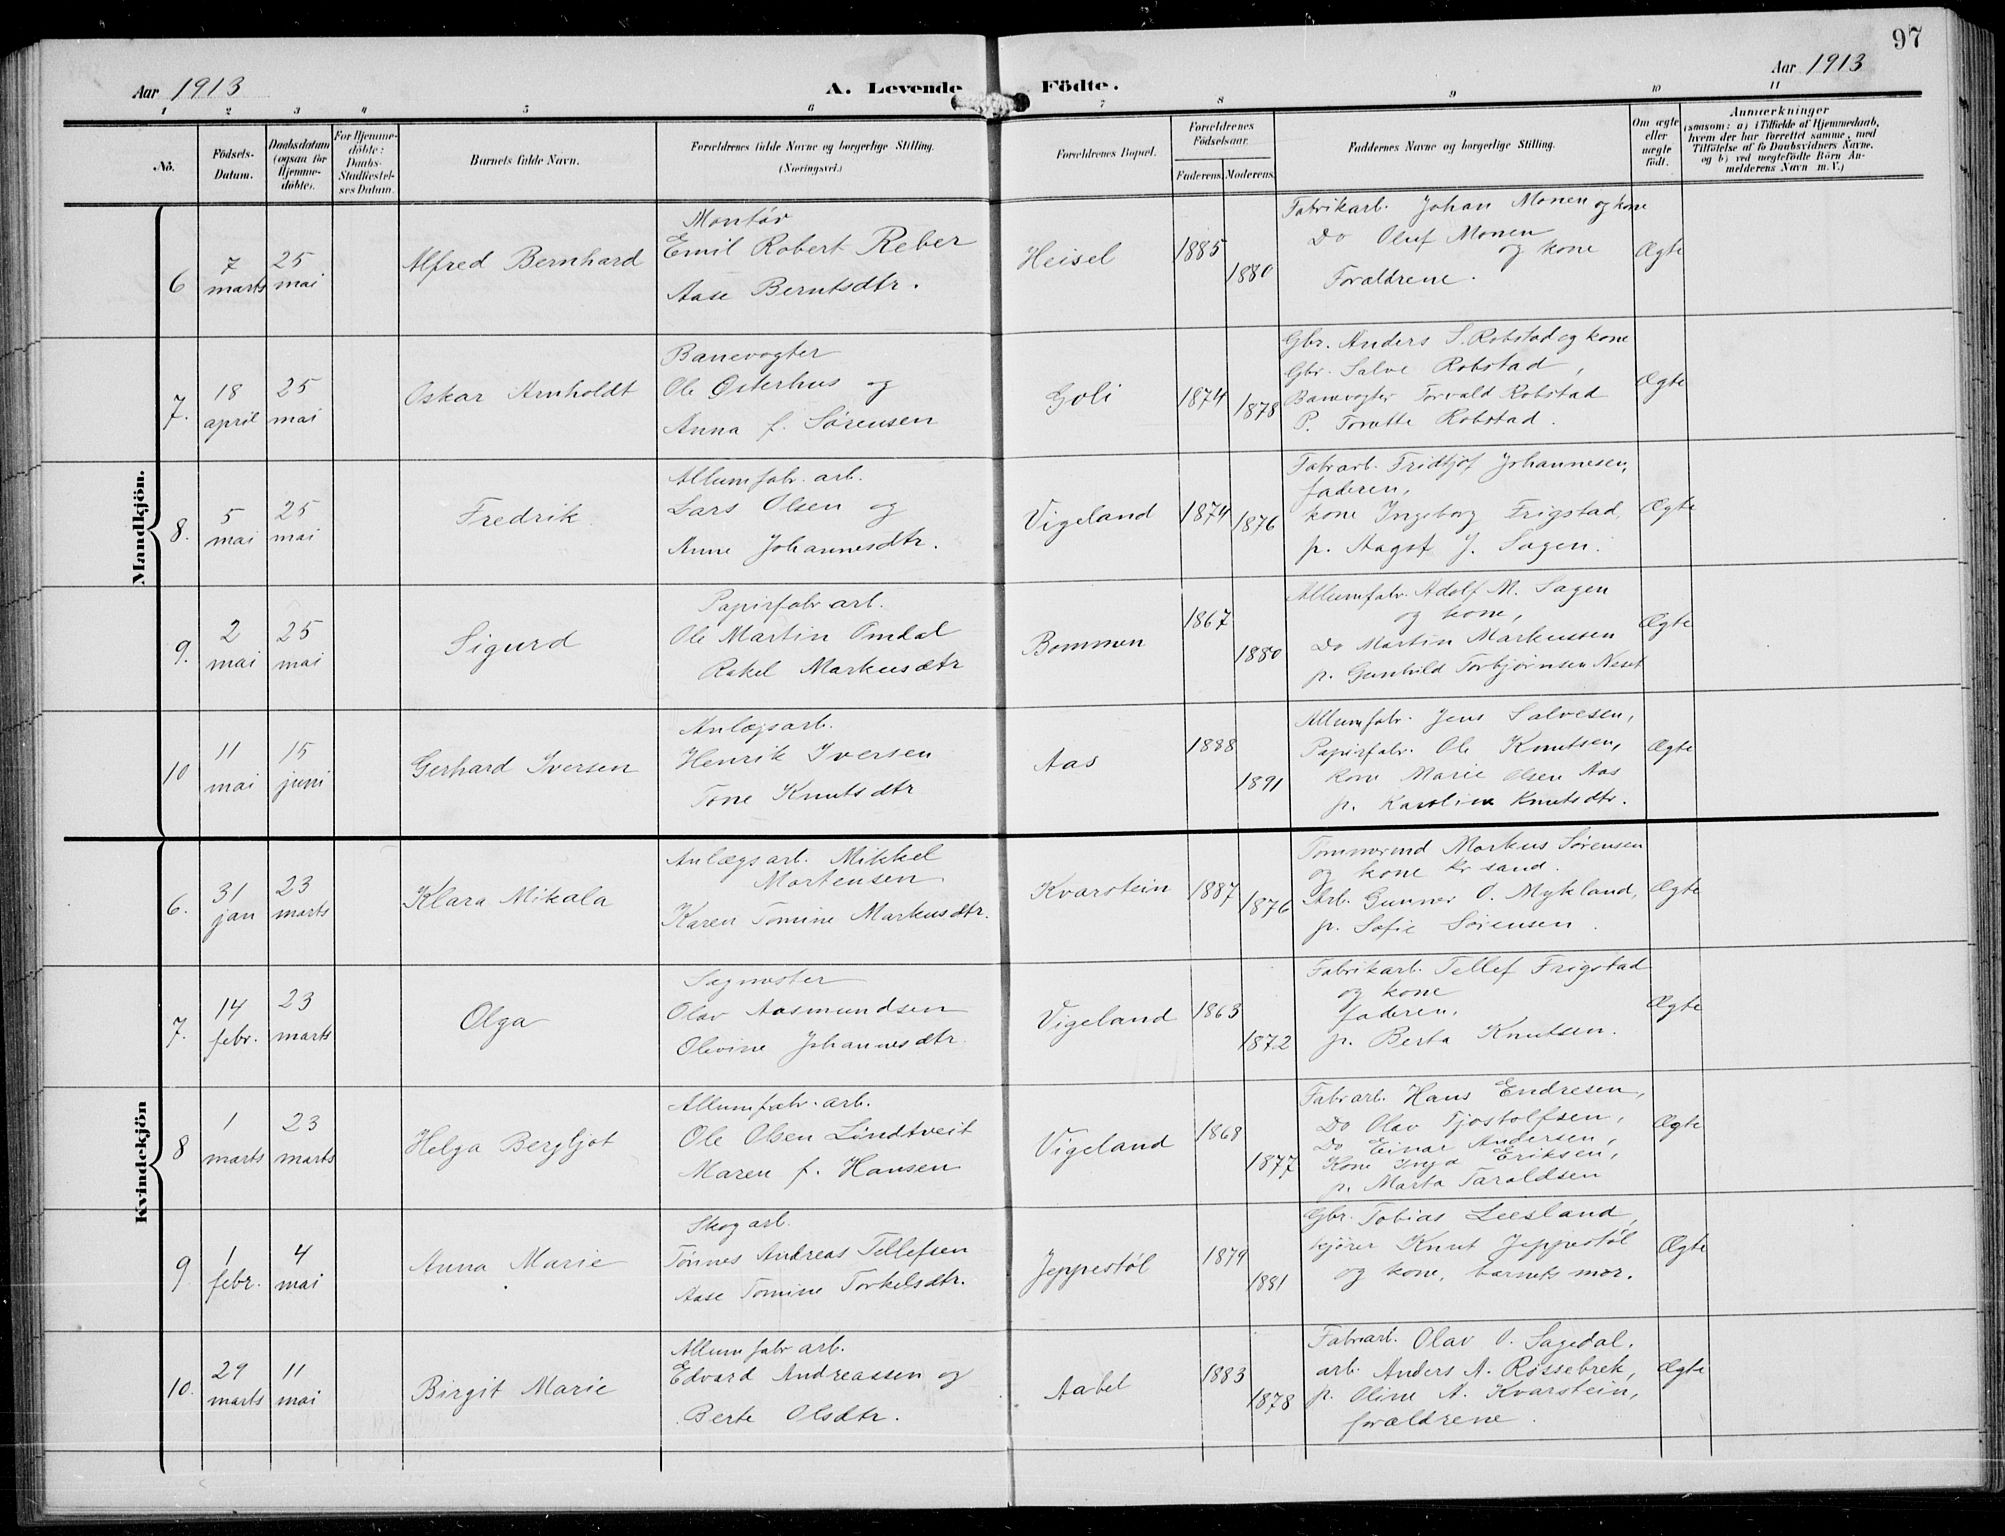 97
Aar 1913
A. Levende Födte.
Aar 1913
1 2 3 4 5 6 7 8 9 10 11
No.
Födsels-Datum.
Daabsdatum (ogsaa for Hjemme-döbte).
For Hjemme-döbte: Daabs-Stadfæstel-ses Datum.
Barnets fulde Navn.
Forældrenes fulde Navne og borgerlige Stilling. (Næringsvei.)
Forældrenes Bopæl.
Forældrenes Födselsaar.
Faderens. Moderens.
Faddernes Navne og borgerlige Stilling.
Om ægte eller uægte födt.
Anmærkninger
(saasom: a) i Tilfælde af Hjemmedaab,
hvem der har forrettet samme, med
Tilföielse af to Daabsvidners Navne,
og b) ved uægtefödte Börn An-
melderens Navn m. V.)
Mandkjön.
6
7 marts
25 mai
Alfred Bernhard
Montør
Emil Robert Reber
Aase Berntsdtr.
Heisel
1885
1880
Fabrikarb. Johan Monen og kone
Do Oluf Monen
og kone
Forældrene.
Ægte
7.
18 april
25 mai
Oskar Arnholdt
Banevogter
Ole Østerhus og
Anna f. Sørensen
Goli
1874
1878
Gbr. Anders S. Robstad og kone
Gbr. Salve Robstad,
Banevogter Torvald Robstad
P. Tomtte Robstad.
Ægte
8.
5 mai
25 mai
Fredrik
Allumfabr. arb.
Lars Olsen og
Anne Johannesdtr.
Vigeland
1874
1876
Fabrarb. Fridtjof Johannesen,
faderen,
kone Ingeborg Frigstad,
p. Aagot J. Sagen.
Ægte
9.
2 mai
25 mai
Sigurd
Papirfabr arb.
Ole Martin Omdal
Rakel Markusdtr
Bommen
1867
1880
Allumfabr. Adolf M. Sagen
og kone,
Do Martin Markussen
p. Gunhild Torbjørnsen Neset
Ægte
10
11 mai
15 juni
Gerhard Iversen
Anlægsarb.
Henrik Iversen
Tone Knutsdtr
Aas
1888
1891
Allumfabr. Jens Salvesen,
Papirfabr. Ole Knutsen,
kone Marie Olsen Aas
p. Karoline Knutsdtr.
Ægte
Kvindekjön
6.
31 jan
23 marts
Klara Mikala
Anlægsarb. Mikkel
Mortensen
Karen Tomine Markusdtr.
Kvarstein
1887
1876
Tømmermd Markus Sørensen
og kone Kr sand.
Arb. Gunner O. Mykland,
p. Sofie Sørensen.
Ægte
7.
14 febr.
23 marts
Olga
Sagmester
Olav Aasmundsen
Olevine Johannesdtr.
Vigeland
1863
1872
Fabrikarb. Tellef Frigstad
og kone
faderen,
p. Berta Knutsen.
Ægte
8
1 marts
23 marts
Helga Bergljot
Allumfabr. arb.
Ole Olsen Lindtveit
Maren f. Hansen
Vigeland
1868
1877
Fabrarb. Hans Endresen,
Do Olav Tjostolfsen,
Do Einar Andersen,
Kone Inga Eriksen,
p. Marta Taraldsen
Ægte
9
1 febr.
4 mai
Anna Marie
Skogarb.
Tønnes Andreas Tellefsen
Aase Tomine Torkelsdtr.
Jeppestøl
1879
1881
Gbr. Tobias Leesland,
kjører Knut Jeppestøl
og kone, barnets mor.
Ægte
10.
29 marts
11 mai
Birgit Marie
Allumfabr arb.
Edvard Andreassen og
Berte Olsdtr.
Aabel
1883
1878
Fabrarb. Olav O. Sagedal.
arb. Anders A. Røssebrek,
p. Oline A. Kvarstein,
forældrene.
Ægte